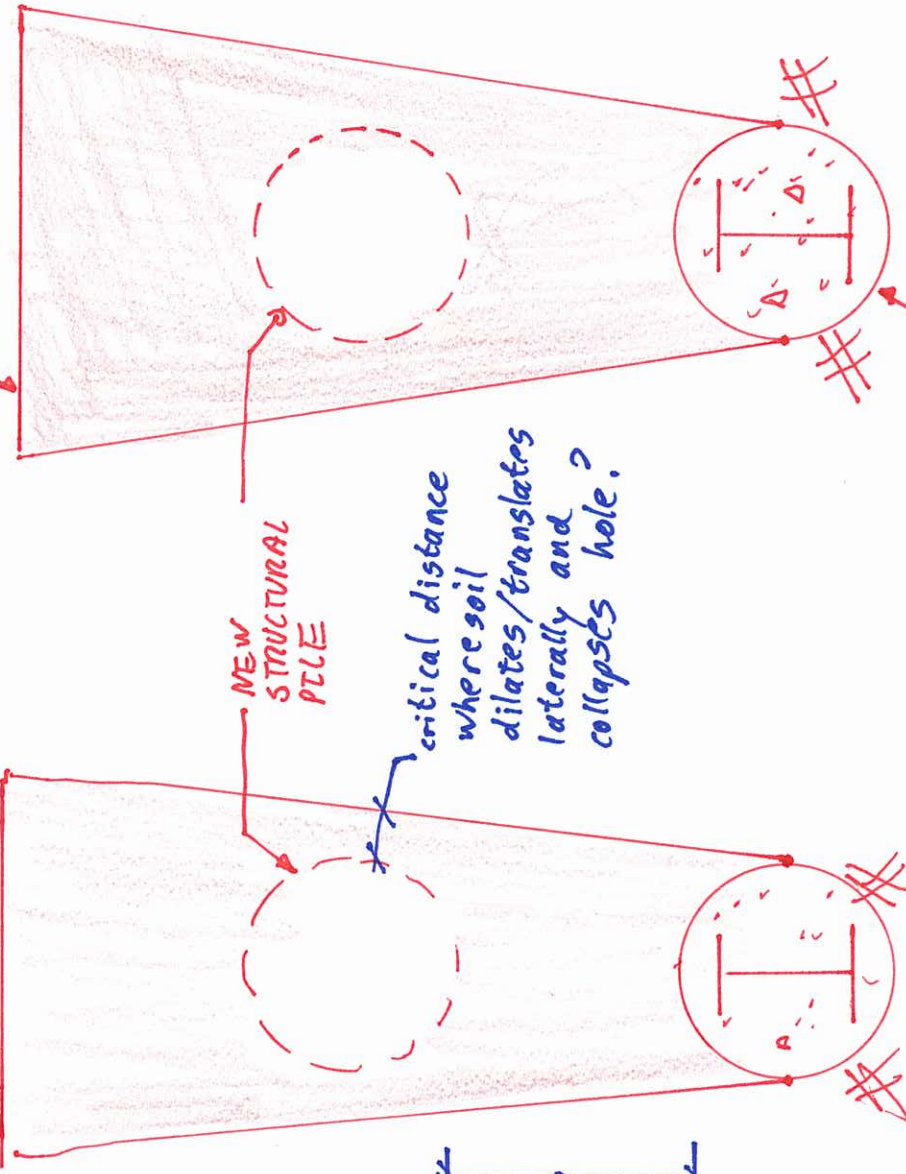 NEW
STRUCTURAL
PILE
critical distance
where soil
dilates/translates
laterally and
collapses hole?